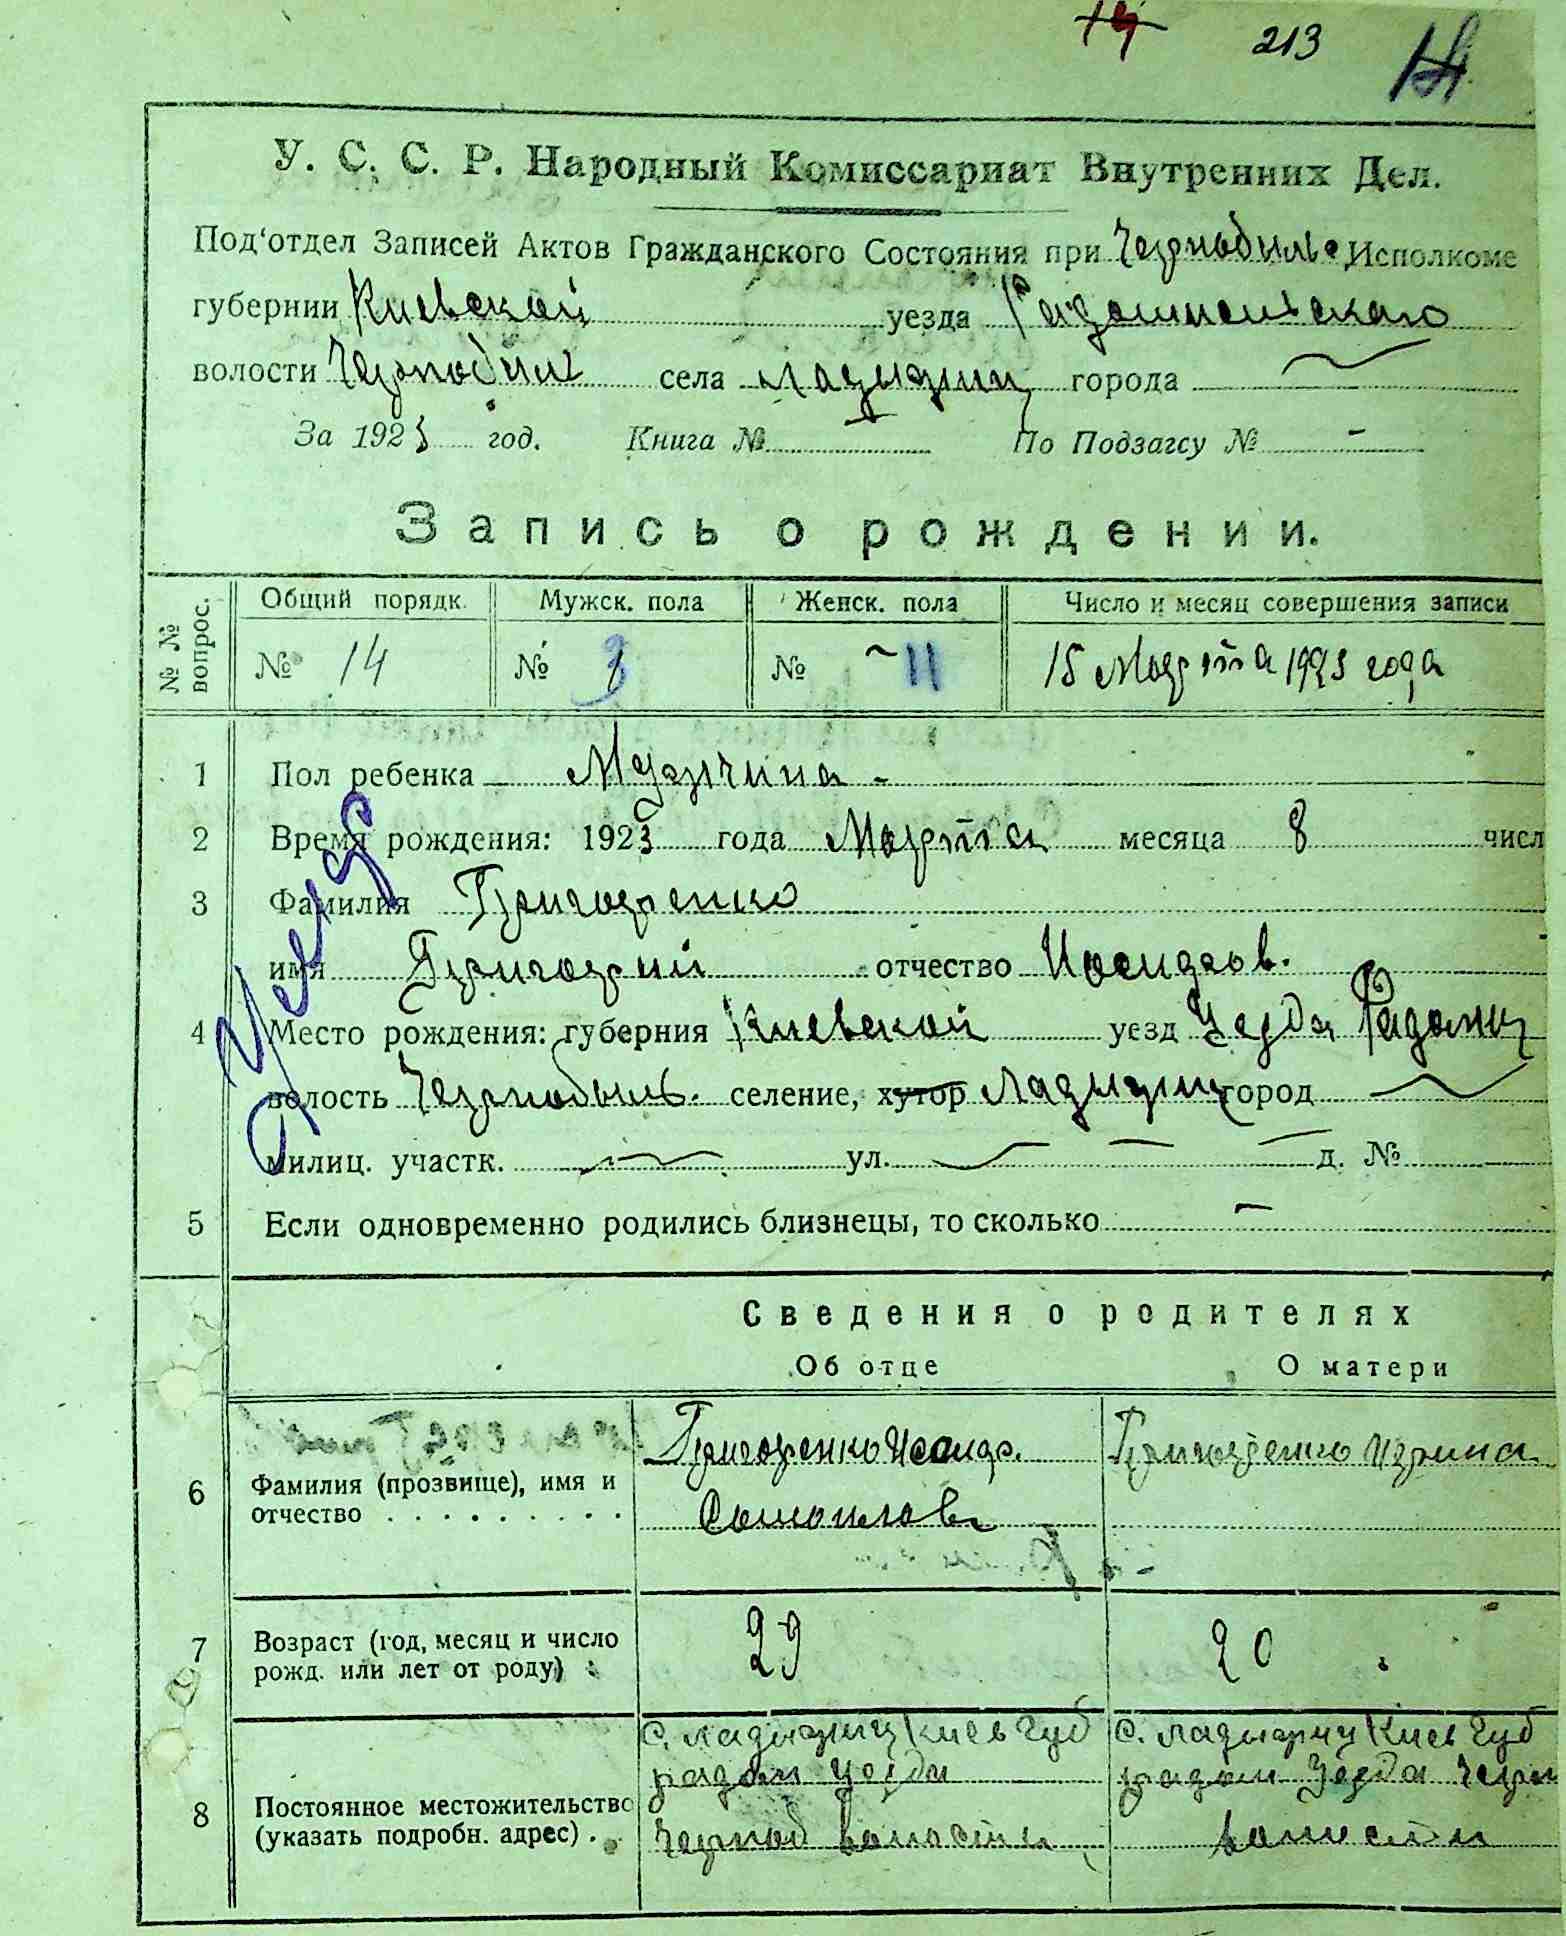 213
У. С. С. Р. Народный Комиссариат Внутренних Дел.
Под'отдел Записей Актов Гражданского Состояния при Чернобыль. Исполкоме
губернии Киевской уезда Радомысльского
волости Чернобыл села Ладыжич города
За 1923 год. Книга № По Подзагсу № -
Запись о рождении.
№№ вопрос. Общий порядк. Мужск. пола Женск. пола Число и месяц совершения записи
№ 14 № 3 № 11 15 Марта 1923 года
1 Пол ребенка Мужчина -
2 Время рождения: 1923 года Марта месяца 8 числ
3 Фамилия Григоренко
имя Григорий отчество Иосидов.
4 Место рождения: губерния Киевской уезд Уезда Радомы
волость Чернобыль. селение, хутор Ладыжич город
милиц. участк. ул. д. №
5 Если одновременно родились близнецы, то сколько -
Сведения о родителях
Об отце О матери
6 Фамилия (прозвище), имя и отчество
Григоренко
Григоренко Ирина
7 Возраст (год, месяц и число рожд. или лет от роду)
29 20
8 Постоянное местожительство (указать подробн. адрес)
С. Ладыжич Киев Губ
радом Уезда
Черноб волости
С. Ладыжич Киев Губ
радом Уезда Черн
волости
Умер